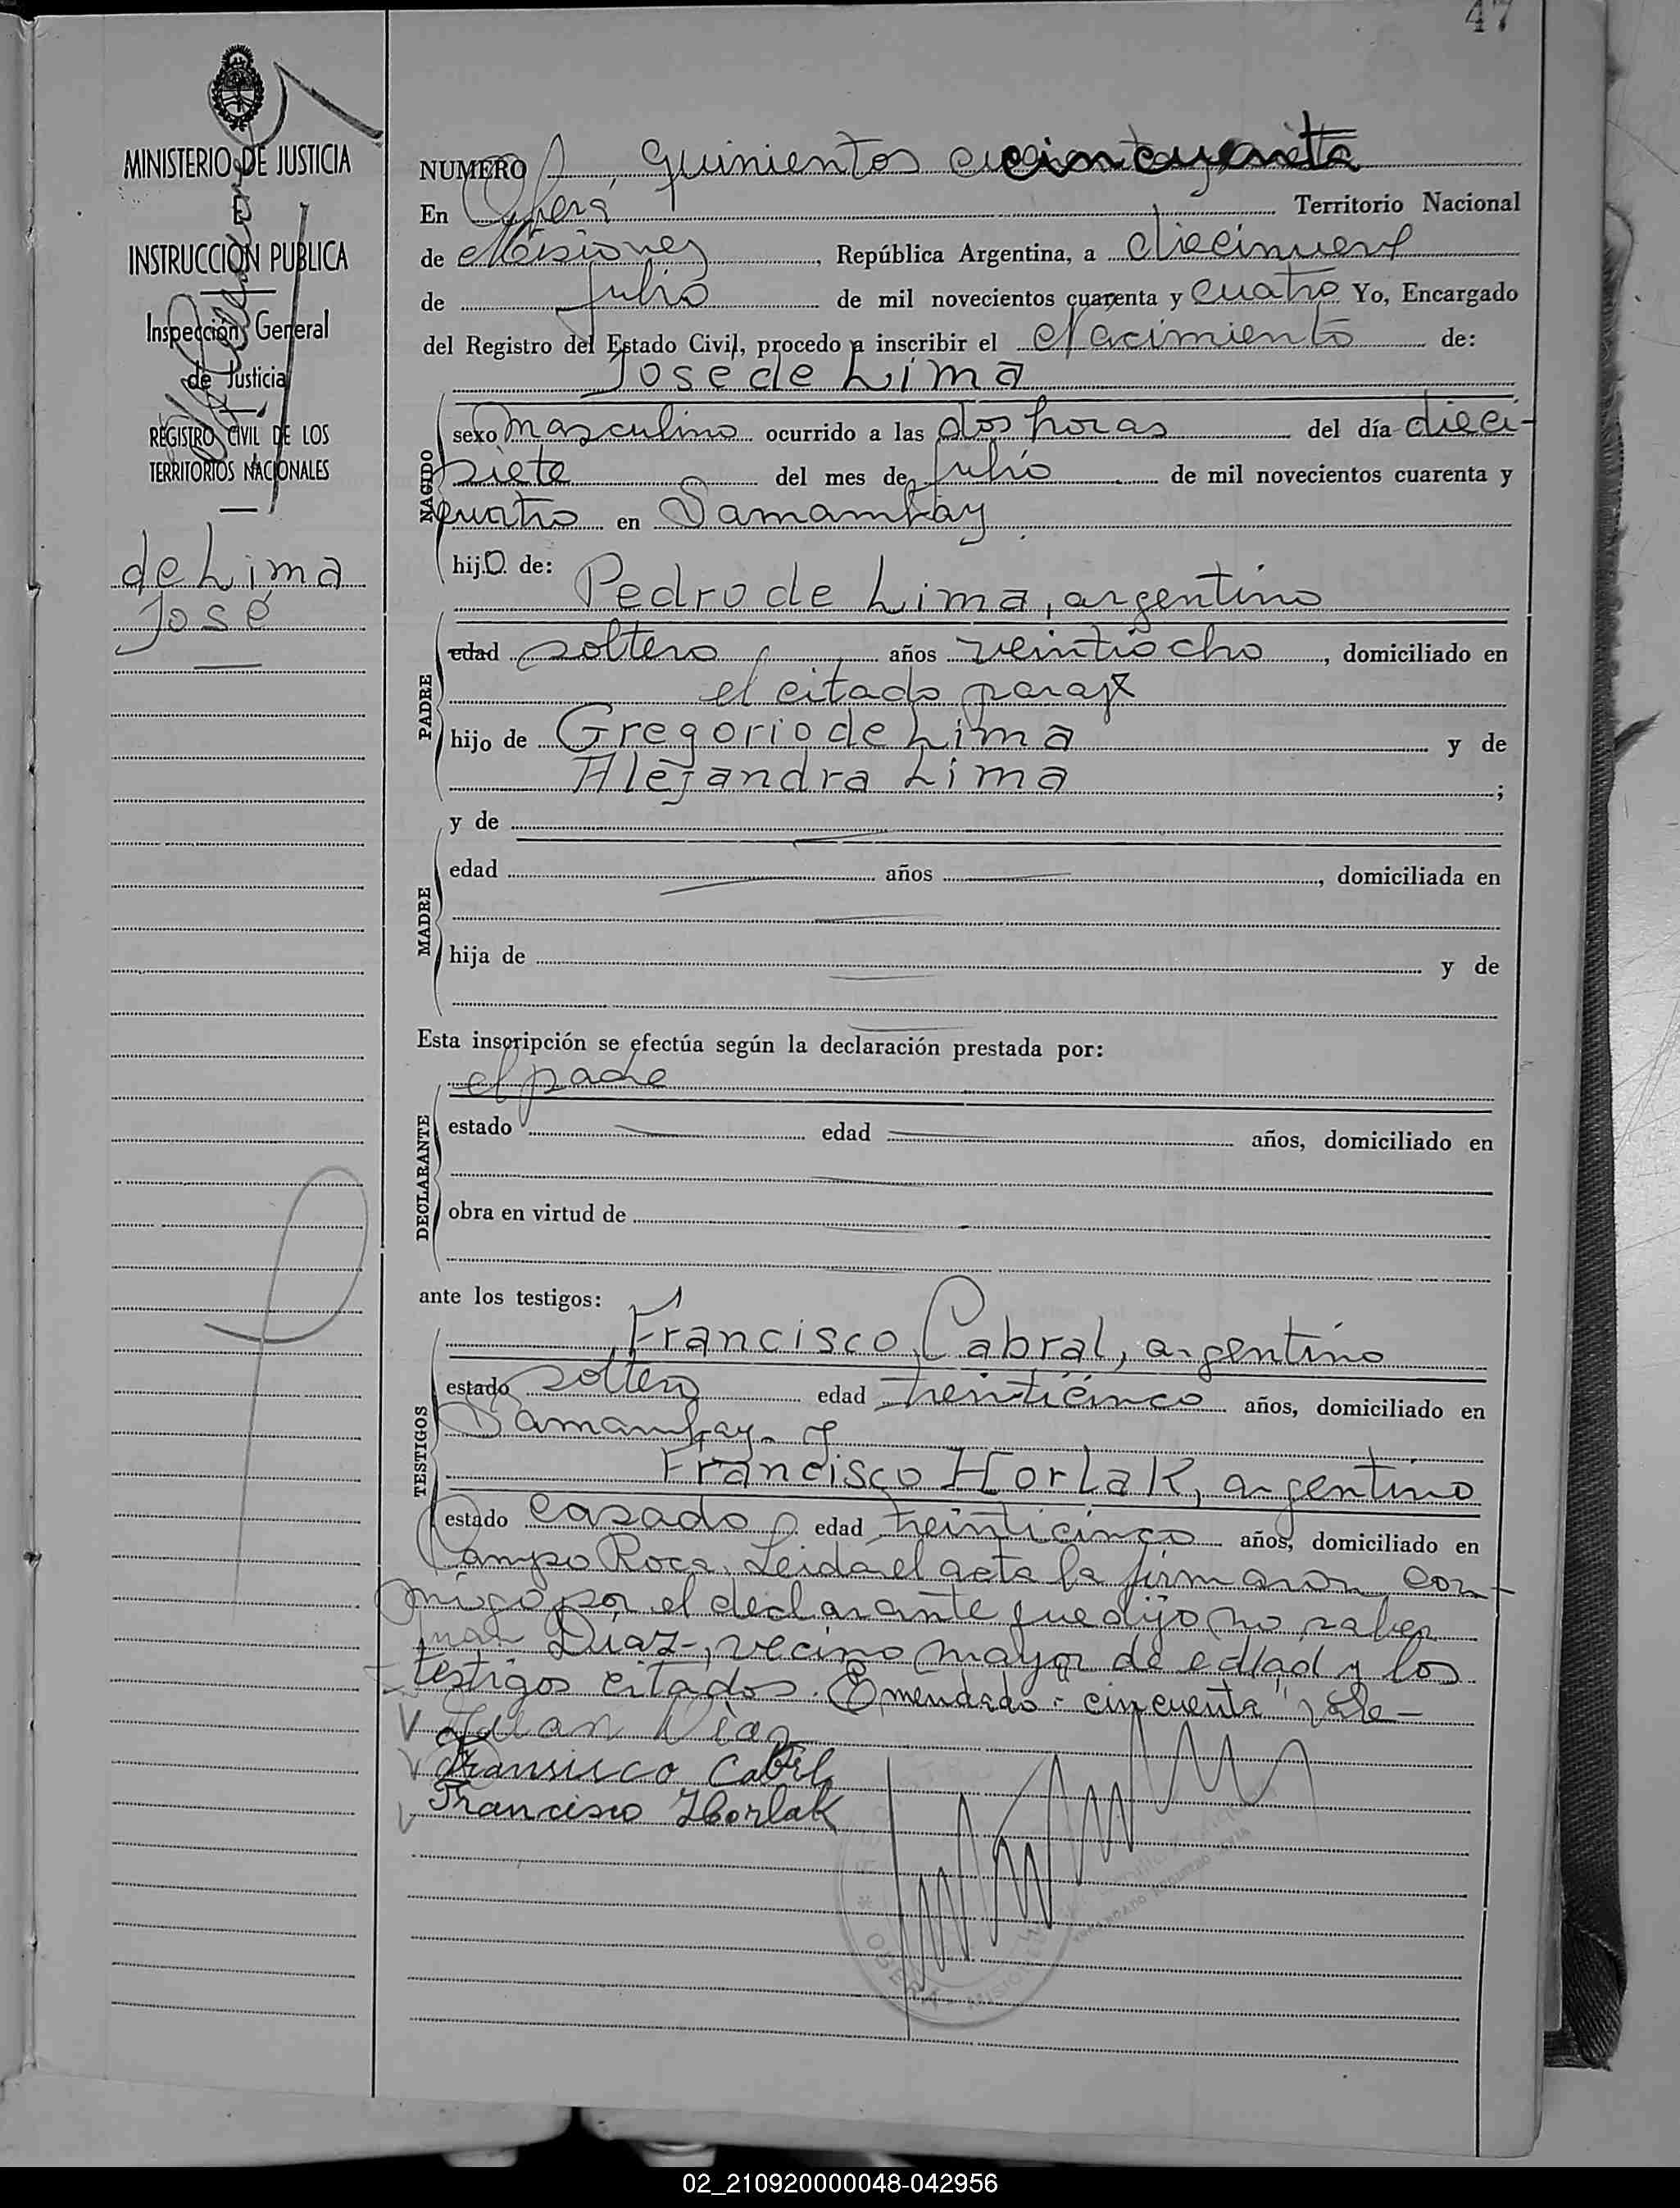 47
MINISTERIO DE JUSTICIA
E
INSTRUCCION PUBLICA
Inspección General
de Justicia
REGISTRO CIVIL DE LOS
TERRITORIOS NACIONALES
de Lima
José
NUMERO quinientos cincuenta
En Oberá, Territorio Nacional
de Misiones, República Argentina, a diecinueve
de julio de mil novecientos cuarenta y cuatro Yo, Encargado
del Registro del Estado Civil, procedo a inscribir el Nacimiento de:
Jose de Lima
NACIDO
sexo masculino ocurrido a las dos horas del día dieci-
siete del mes de julio de mil novecientos cuarenta y
cuatro en Samambay
hijo de:
Pedro de Lima, argentino
PADRE
edad soltero años veintiocho, domiciliado en
el citado paraje
hijo de Gregorio de Lima y de
Alejandra Lima;
MADRE
y de
edad años, domiciliada en
hija de y de
Esta inscripción se efectúa según la declaración prestada por:
el padre
DECLARANTE
estado edad años, domiciliado en
obra en virtud de
ante los testigos:
Francisco Cabral, argentino
TESTIGOS
estado soltero edad treinticinco años, domiciliado en
Samambay- y
Francisco Horlak, argentino
estado casado edad treinticinco años, domiciliado en
Campo Roca. Leida el acta la firmaron con-
migo por el declarante que dijo no saber
Juan Diaz-, vecino mayor de edad y los
testigos citados. Emendado: "cincuenta" Vale-
Juan Diaz
Fransisco Cabral
Francisco Horlak
OBERA
MISIONES
ENCARGADO REGISTRO
02_210920000048-042956